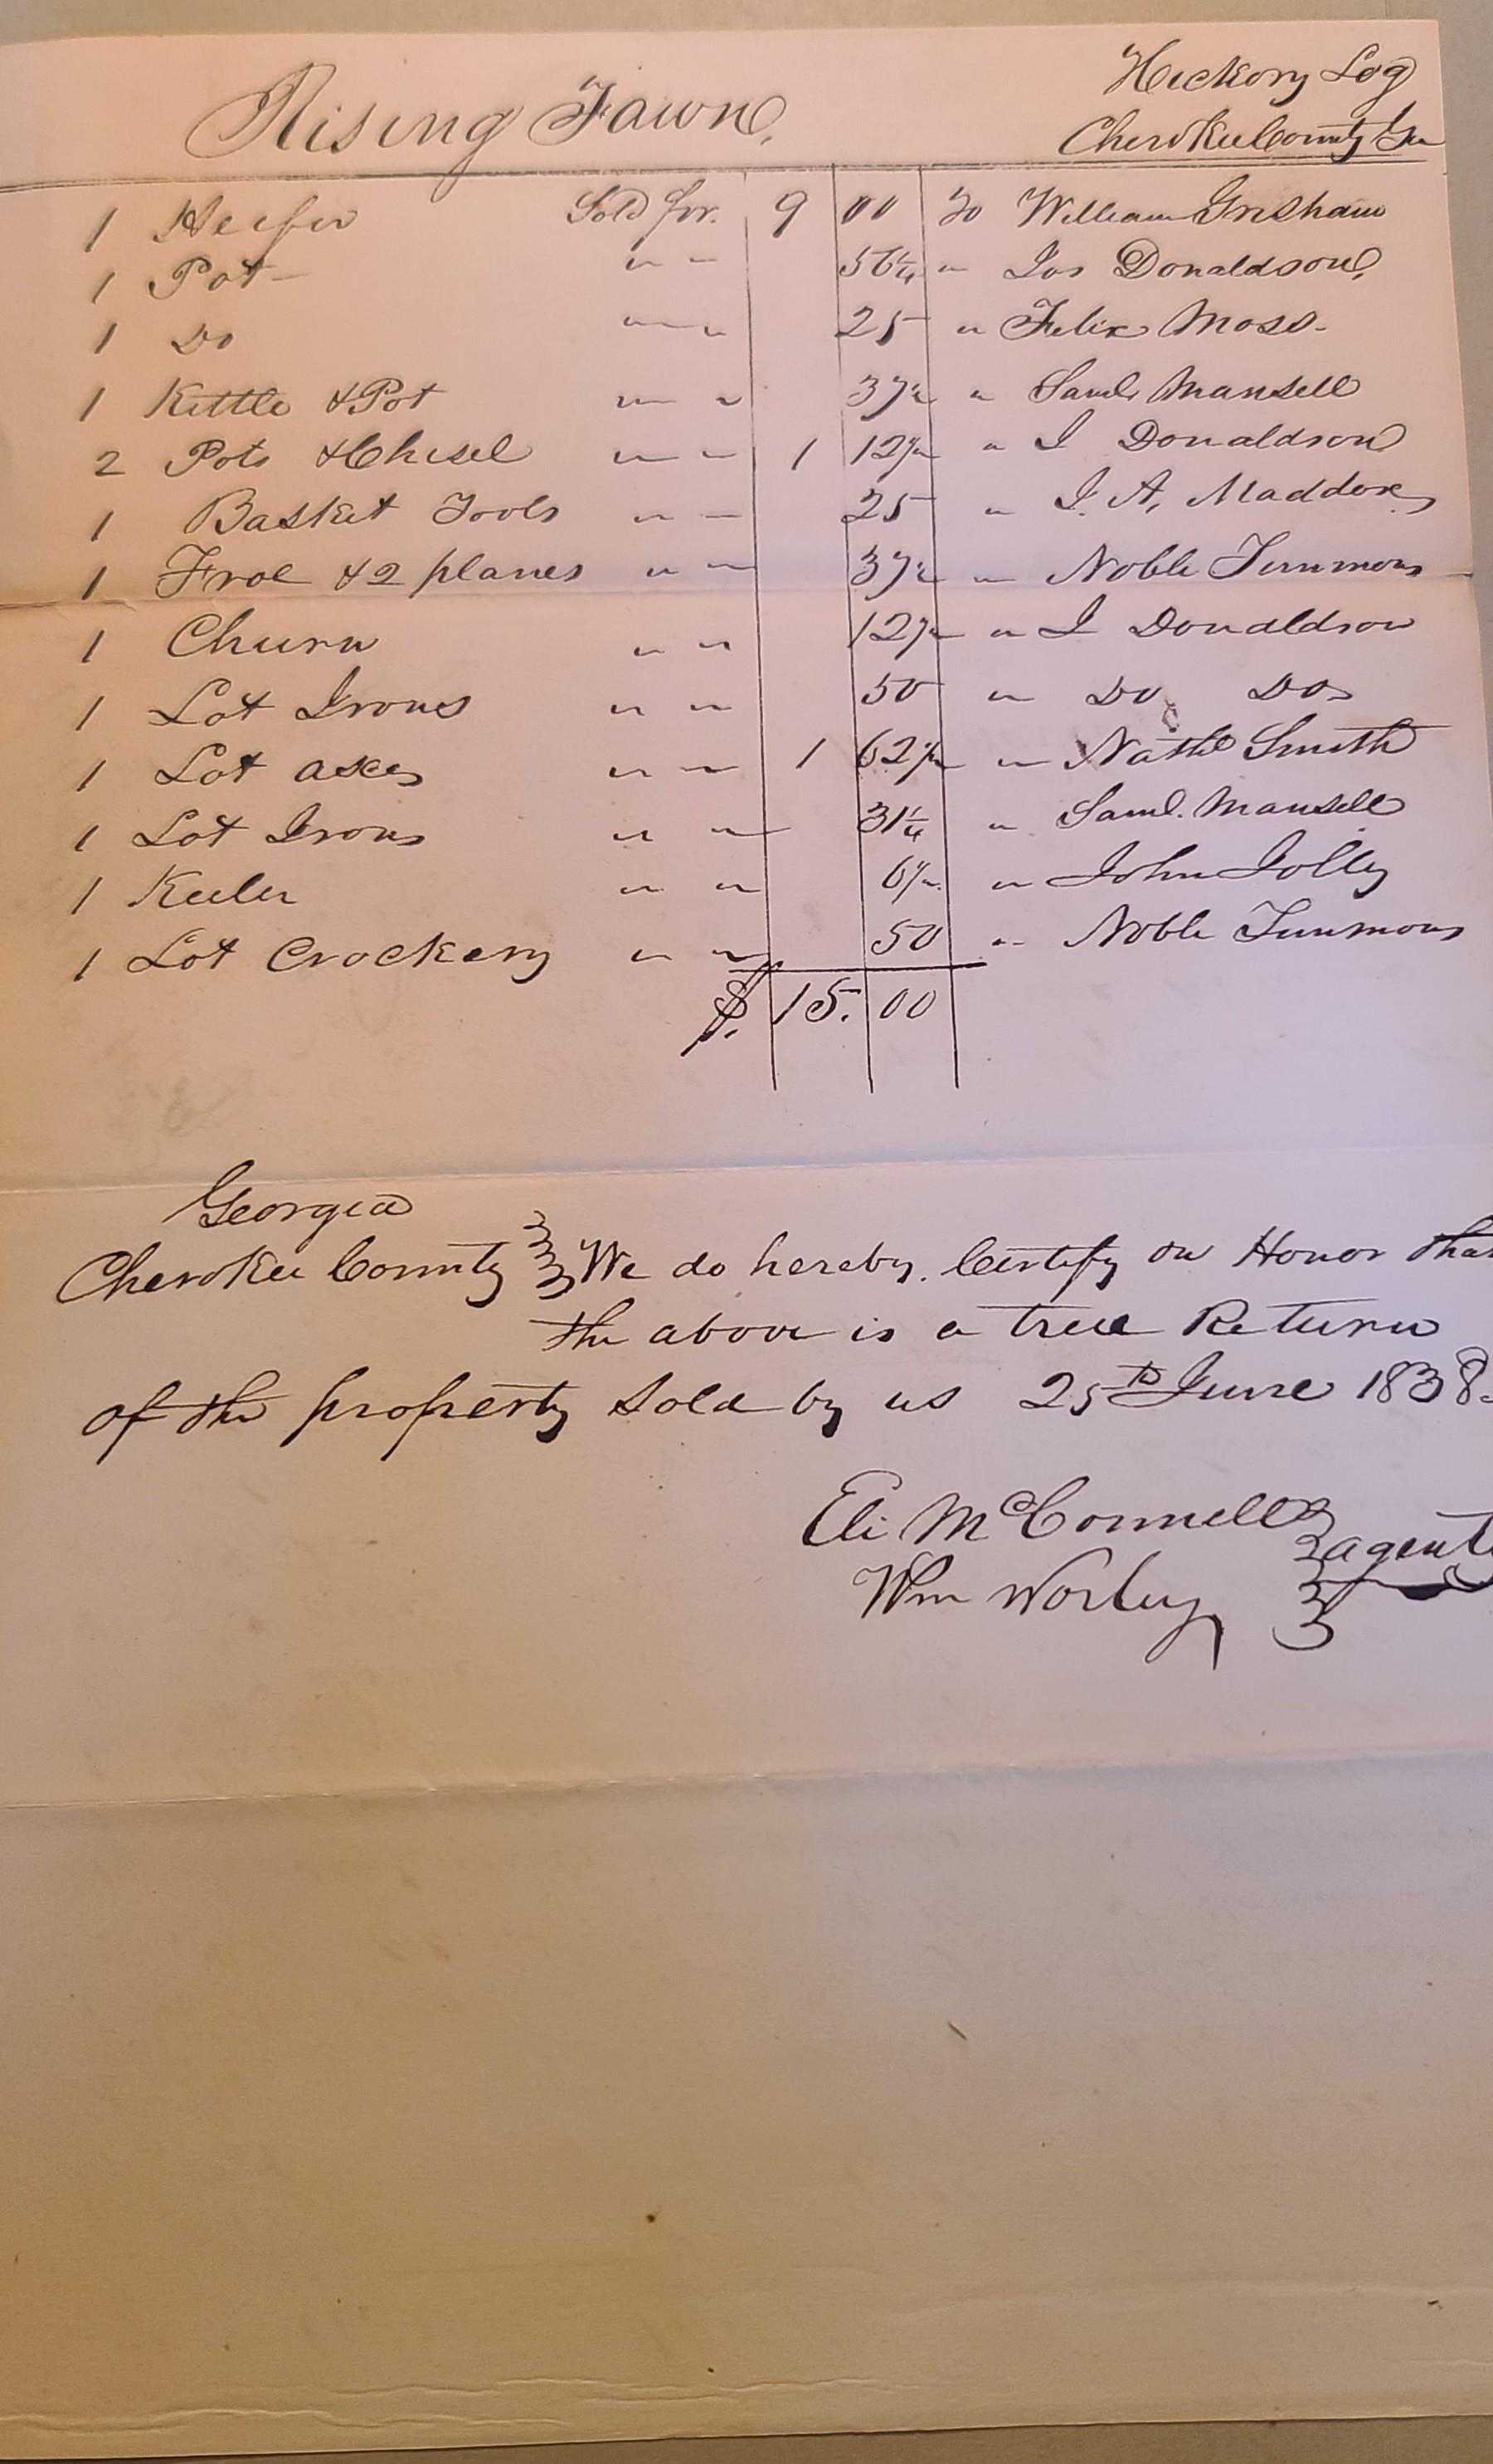 Rising Fawn,
Hickory Log
Cherokee County Ga
1 Heifer Sold for. 9 00 To William Grisham
1 Pot " " 56¼ " Jos Donaldson,
1 Do " " 25 " Felix Moss.
1 Kettle & Pot " " 37½ " Saml. Mansell
2 Pots & Chisel " " 1 12½ " J Donaldson
1 Basket Tools " " 25 " J. A. Maddox
1 Froe & 2 planes " " 37½ " Noble Timmons
1 Churn " " 12½ " J Donaldson
1 Lot Irons " " 50 " Do Do
1 Lot axes " " 1 62½ " Nathl Smith
1 Lot Irons " " 31¼ " Saml. Mansell
1 Keeler " " 6¼ " John Jolly
1 Lot Crockery " " 50 " Noble Timmons
$. 15. 00
Georgia
Cherokee County } We do hereby Certify on Honor that
the above is a true Return
of the property sold by us 25th June 1838.
Eli McConnell
Wm Worley } agents